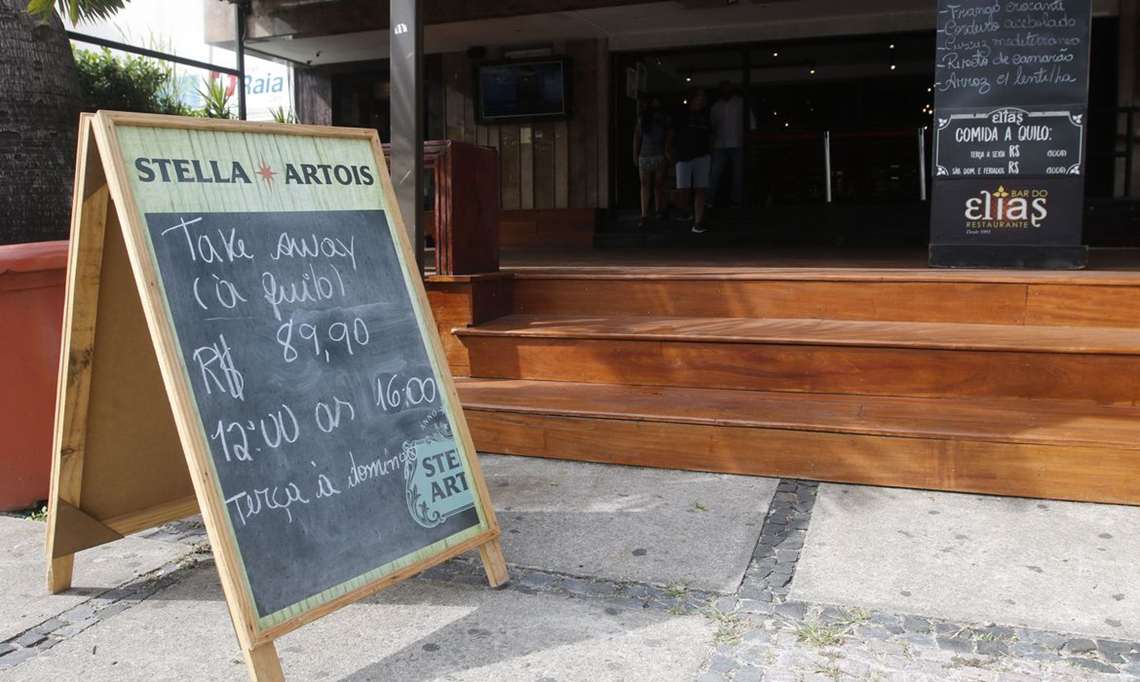 STELLA ARTOIS
Take away
(à quilo)
R$ 89,90
12:00 as 16:00
Terça à domingo
ANNO
STE
ART
Raia
Frango crocante
Cordeiro acebolado
Cuscuz mediterrâneo
Risoto de camarão
Arroz c/ lentilha
elias
COMIDA A QUILO:
TERÇA A SEXTA R$ 100G
SÁB. DOM. E FERIADOS R$ 100G
BAR DO
elias
RESTAURANTE
Desde 1992